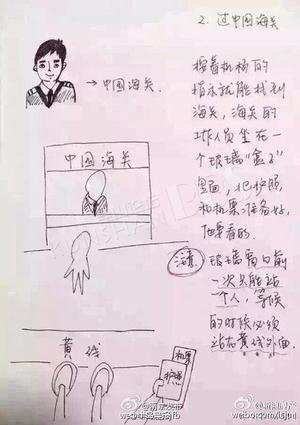 2. 过中国海关
→中国海关.
按着机场的
指示就能找到
海关, 海关的
工作人员坐在一
个玻璃“盒子”
里面, 把护照
和机票准备好,
他要看的.
注意
玻璃窗口前
一次只能站
一个人, 等候
的时候必须
站在黄线外面.
中国海关
黄线
机票
护照